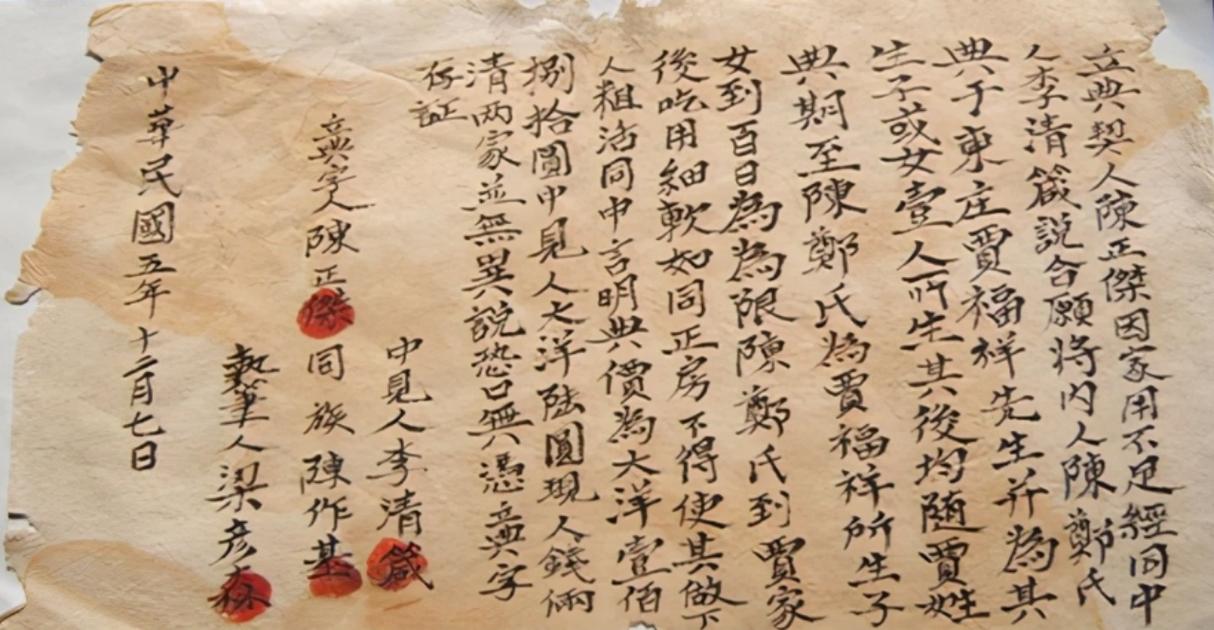 立典契人陳正傑因家用不足經同中
人李清箴說合願將内人陳鄭氏
典于東庄賈福祥先生并為其
生子或女壹人所生其後均随賈姓
典期至陳鄭氏為賈福祥所生子
女到百日為為限陳鄭氏到賈家
後吃用細軟如同正房不得使其做下
人粗活同中言明典價為大洋壹佰
捌拾圓中見人大洋陸圓現人錢倆
清两家並無異說恐口無憑立典字
存証
中見人李清箴
立典字人陳正傑同族陳作基
執筆人梁彦森
中華民國五年十二月七日